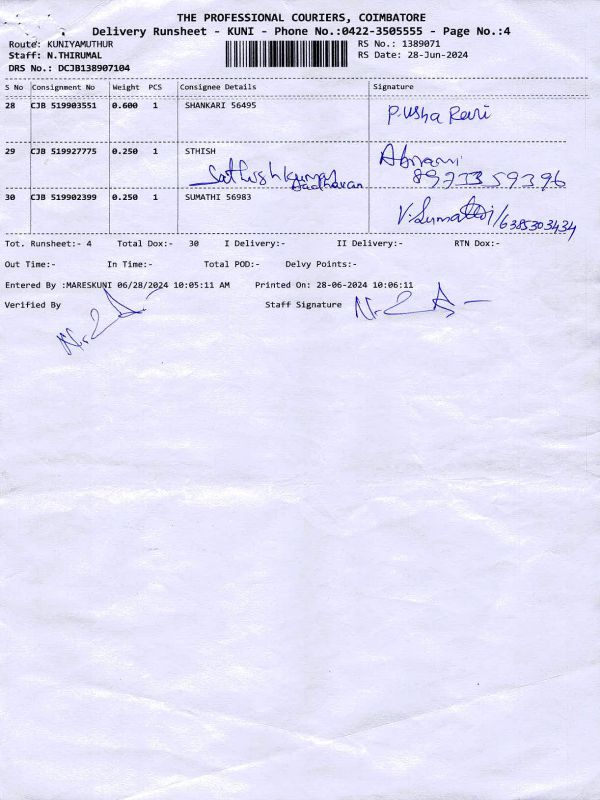 THE PROFESSIONAL COURIERS, COIMBATORE
Delivery Runsheet - KUNI - Phone No.:0422-3505555 - Page No.:4
Route: KUNIYAMUTHUR
RS No.: 1389071
Staff: N.THIRUMAL
RS Date: 28-Jun-2024
DRS No.: DCJB138907104
S No Consignment No Weight PCS Consignee Details Signature
28 CJB 519903551 0.600 1 SHANKARI 56495 P. Usha Ravi
29 CJB 519927775 0.250 1 STHISH
Sathishkumar
8973359396
30 CJB 519902399 0.250 1 SUMATHI 56983 V. Sumathi/6385303434
Tot. Runsheet:- 4 Total Dox:- 30 I Delivery:- II Delivery:- RTN Dox:-
Out Time:- In Time:- Total POD:- Delvy Points:-
Entered By :MARESKUNI 06/28/2024 10:05:11 AM Printed On: 28-06-2024 10:06:11
Verified By Staff Signature